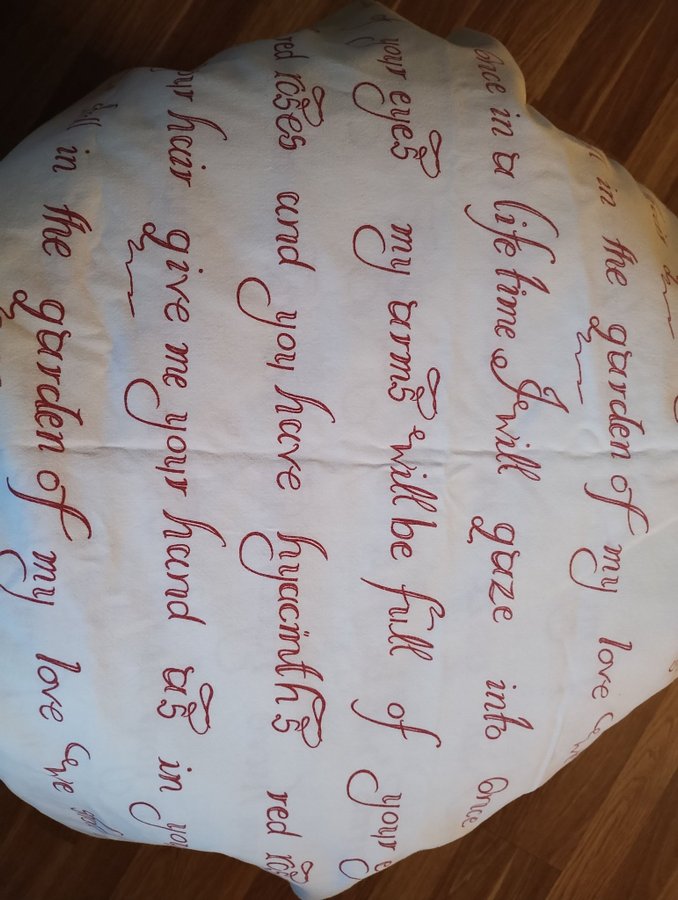 in the garden of my love we
once in a life time I will gaze into once
of your eyes my arms will be full of your
red roses and you have hyacinths red
your hair give me your hand as in
in the garden of my love we